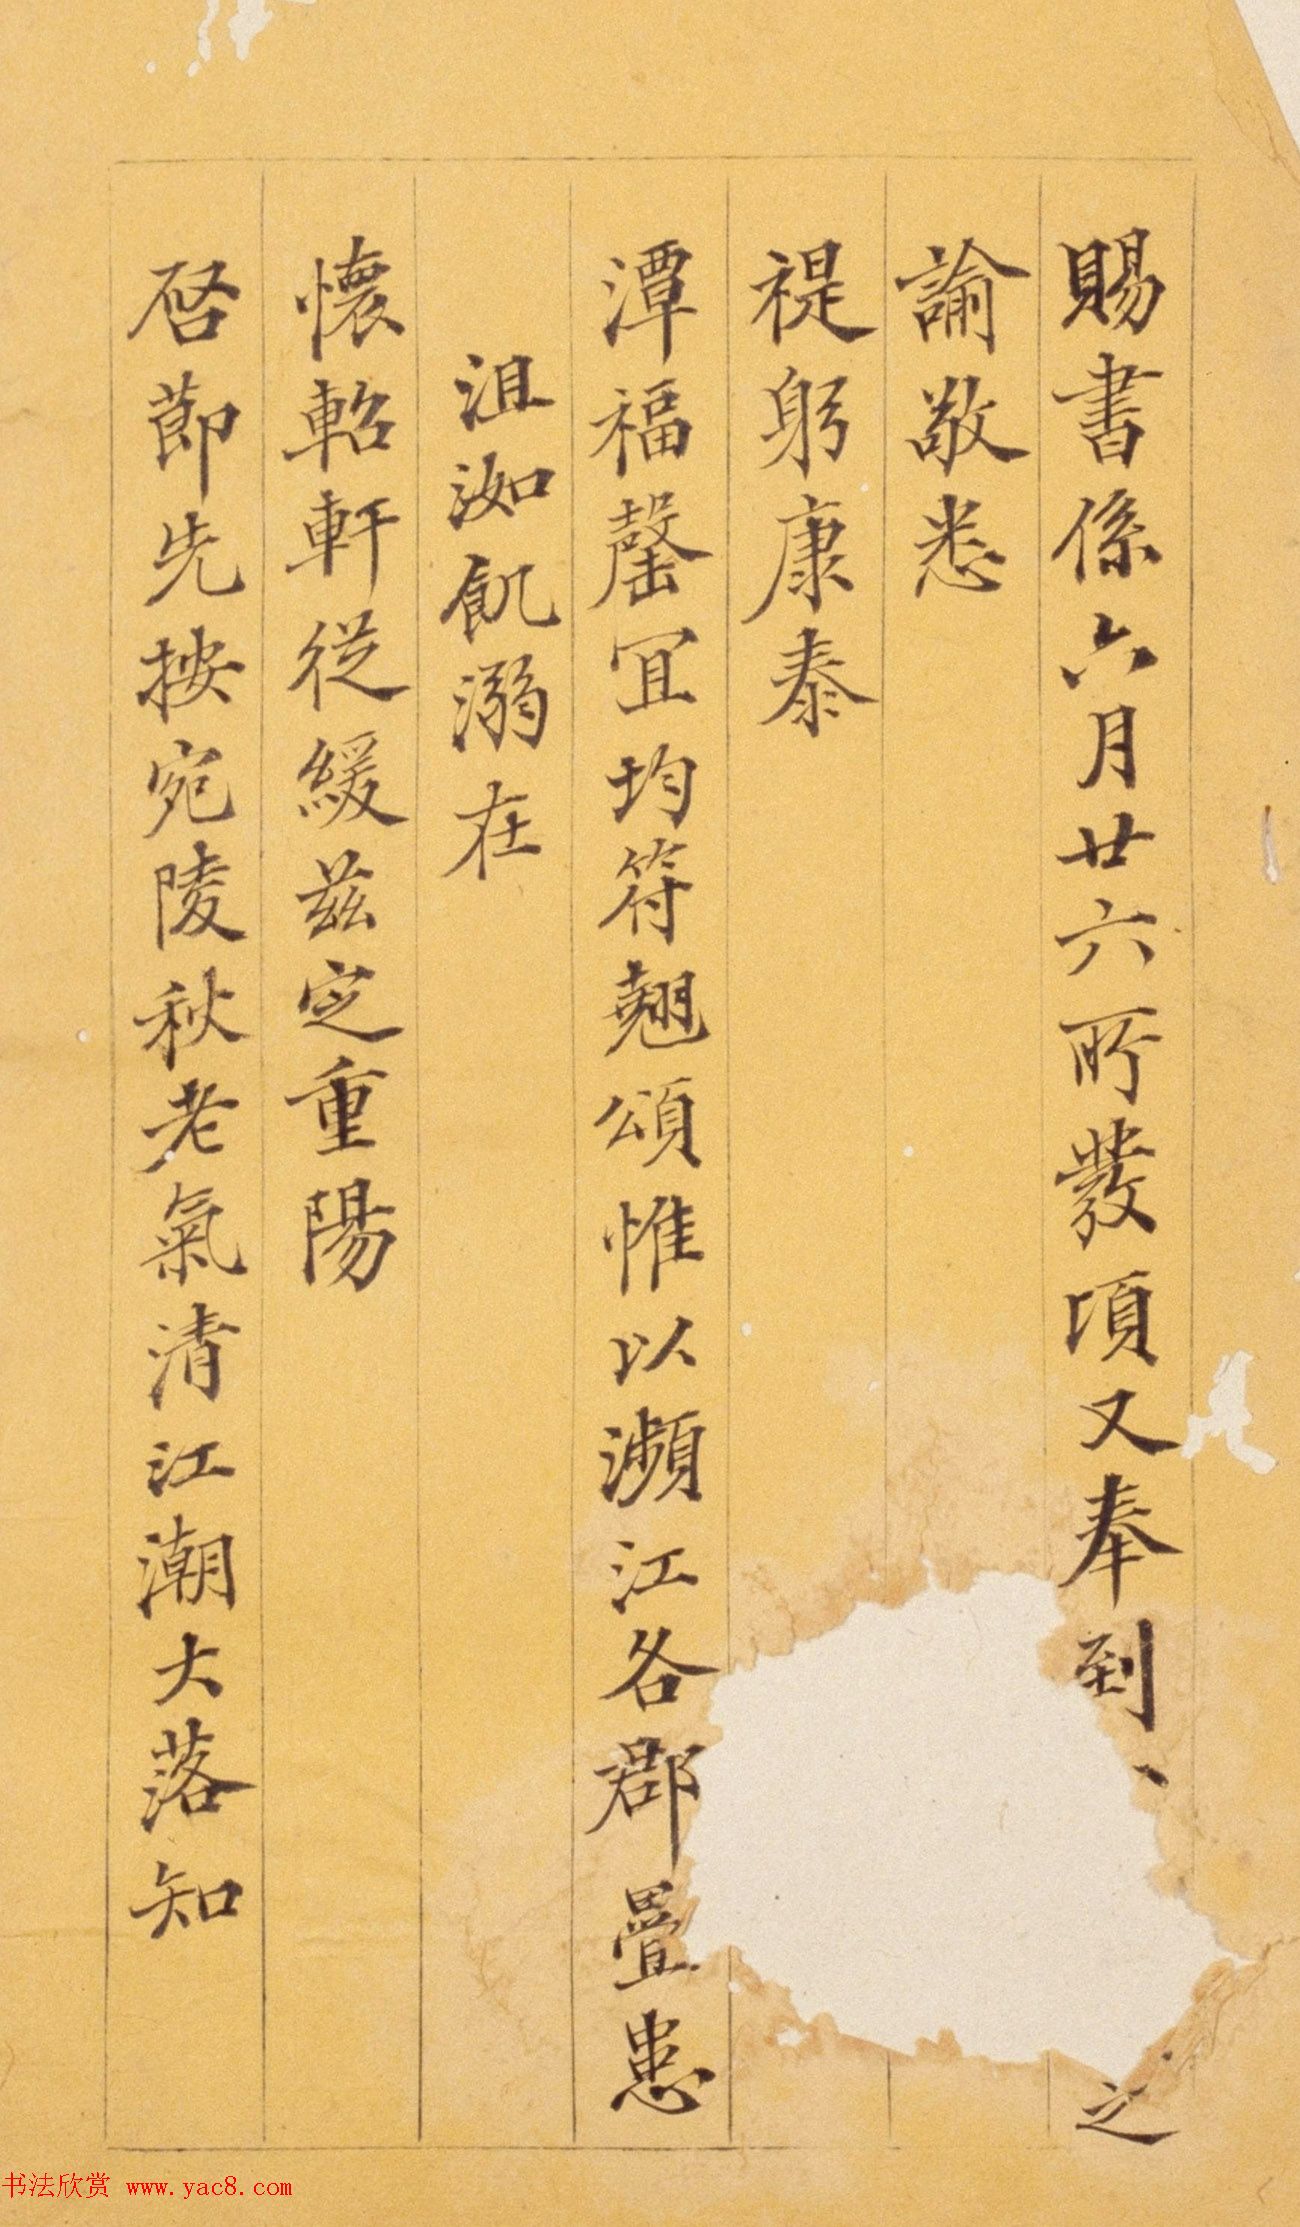 賜書係六月廿六所發頃又奉到之
諭敬悉
禔躬康泰
潭福罄宜均符翹頌惟以瀕江各郡疊患
沮洳飢溺在
懷軺軒從緩兹定重陽
啓節先按宛陵秋老氣清江潮大落知
书法欣赏 www.yac8.com